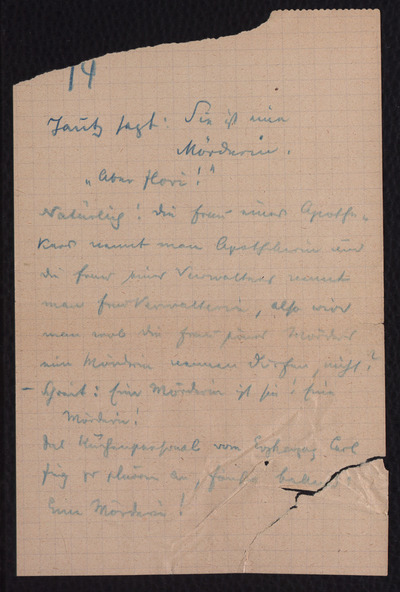 14
Jautz sagt: Sie ist eine
Mörderin.
„Aber Flori!"
Natürlich! die Frau eines Apothe-
kers nennt man Apothekerin und
die Frau eines Verwalters nennt
man Frau Verwalterin, also wird
man wol die Frau eines Mörders
eine Mörderin nennen dürfen, nicht?
– : Eine Mörderin ist sie! Eine
Mörderin!
Das Küchenpersonal vom Erzherzog Carl
fing zu an,
Eine Mörderin!